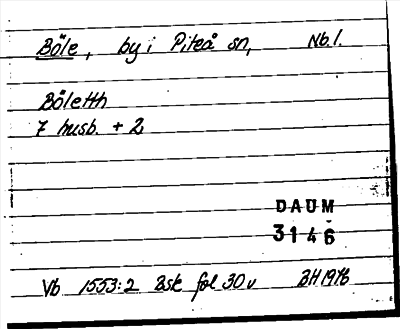 Böle, by i Piteå sn, Nb.l.
Böletth
7 husb. + 2
DAUM
3146
Vb 1553:2 Bsk fol 30v BH 1976